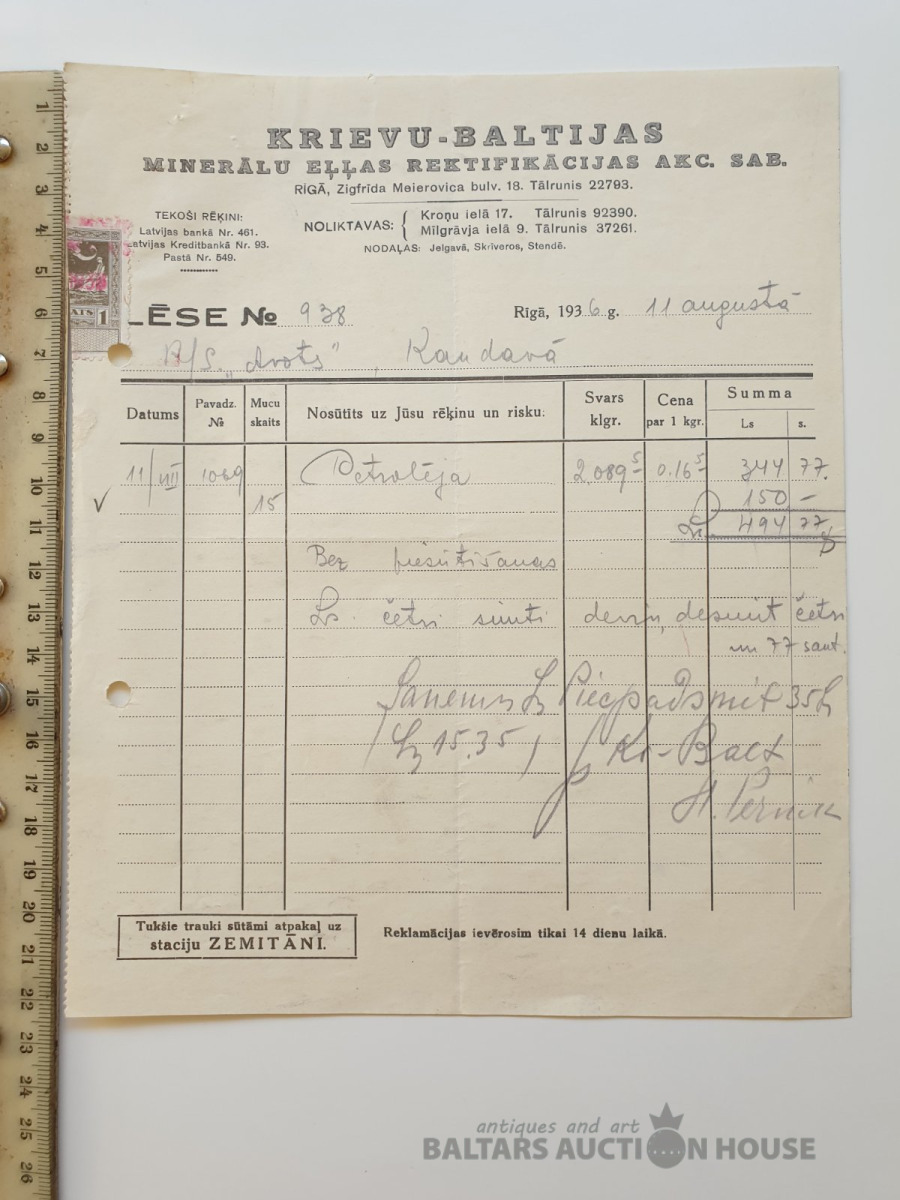 KRIEVU-BALTIJAS
MINERĀLU EĻĻAS REKTIFIKĀCIJAS AKC. SAB.
RĪGĀ, Zigfrīda Meierovica bulv. 18. Tālrunis 22793.
TEKOŠI RĒĶINI:
Latvijas bankā Nr. 461.
atvijas Kreditbankā Nr. 93.
Pastā Nr. 549.
NOLIKTAVAS:
Kroņu ielā 17. Tālrunis 92390.
Mīlgrāvja ielā 9. Tālrunis 37261.
NODAĻAS: Jelgavā, Skrīveros, Stendē.
ATS 1
LĒSE № 938
Rīgā, 1936 g. 11 augustā
A/S. „Avots", Kandavā
Datums Pavadz. № Mucu skaits Nosūtīts uz Jūsu rēķinu un risku: Svars klgr. Cena par 1 kgr. Summa Ls s.
11/VIII 1069 Petroleja 2,089 5 0.16 5 344 77.
15 150 —
Ls. 494 77
Bez piesūtīšanas
Ls. četri simti deviņdesmit četri
un 77 sant.
Saņemts Ls Piecpadsmit 35 s
/Ls 15.35/ p Kr-Balt
Tukšie trauki sūtāmi atpakaļ uz
staciju ZEMITĀNI.
Reklamācijas ievērosim tikai 14 dienu laikā.
1
2
3
4
5
6
7
8
9
10
11
12
13
14
15
16
17
18
19
20
21
22
23
24
25
26
antiques and art
BALTARS AUCTION HOUSE